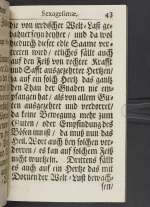 Sexagesimæ. 43
die von irrdischer Welt-Last ge-
waltet seyn betret / und da wol
dadurch dieser edle Saame ver-
treten wird / etliches fällt auch
auf den Felß von rechter Krafft
und Safft ausgezehrter Hertzen/
da auf ein solch Hertz das gantz
den Thau der Gnaden nie em-
pfangen hat / als von allem Gu-
ten ausgezehret und verdorret
da keine Bewegung mehr zum
Guten / oder Empfindung des
Bösen nun ist / da muß nun das
Heil. Wort auch bey solchen ver-
dorren / es kan auf solchem Felß
nicht wurtzeln. Drittens fällt
es auch auf ein Hertze das mit
Dornen der Welt-Lust bewach-
sen/